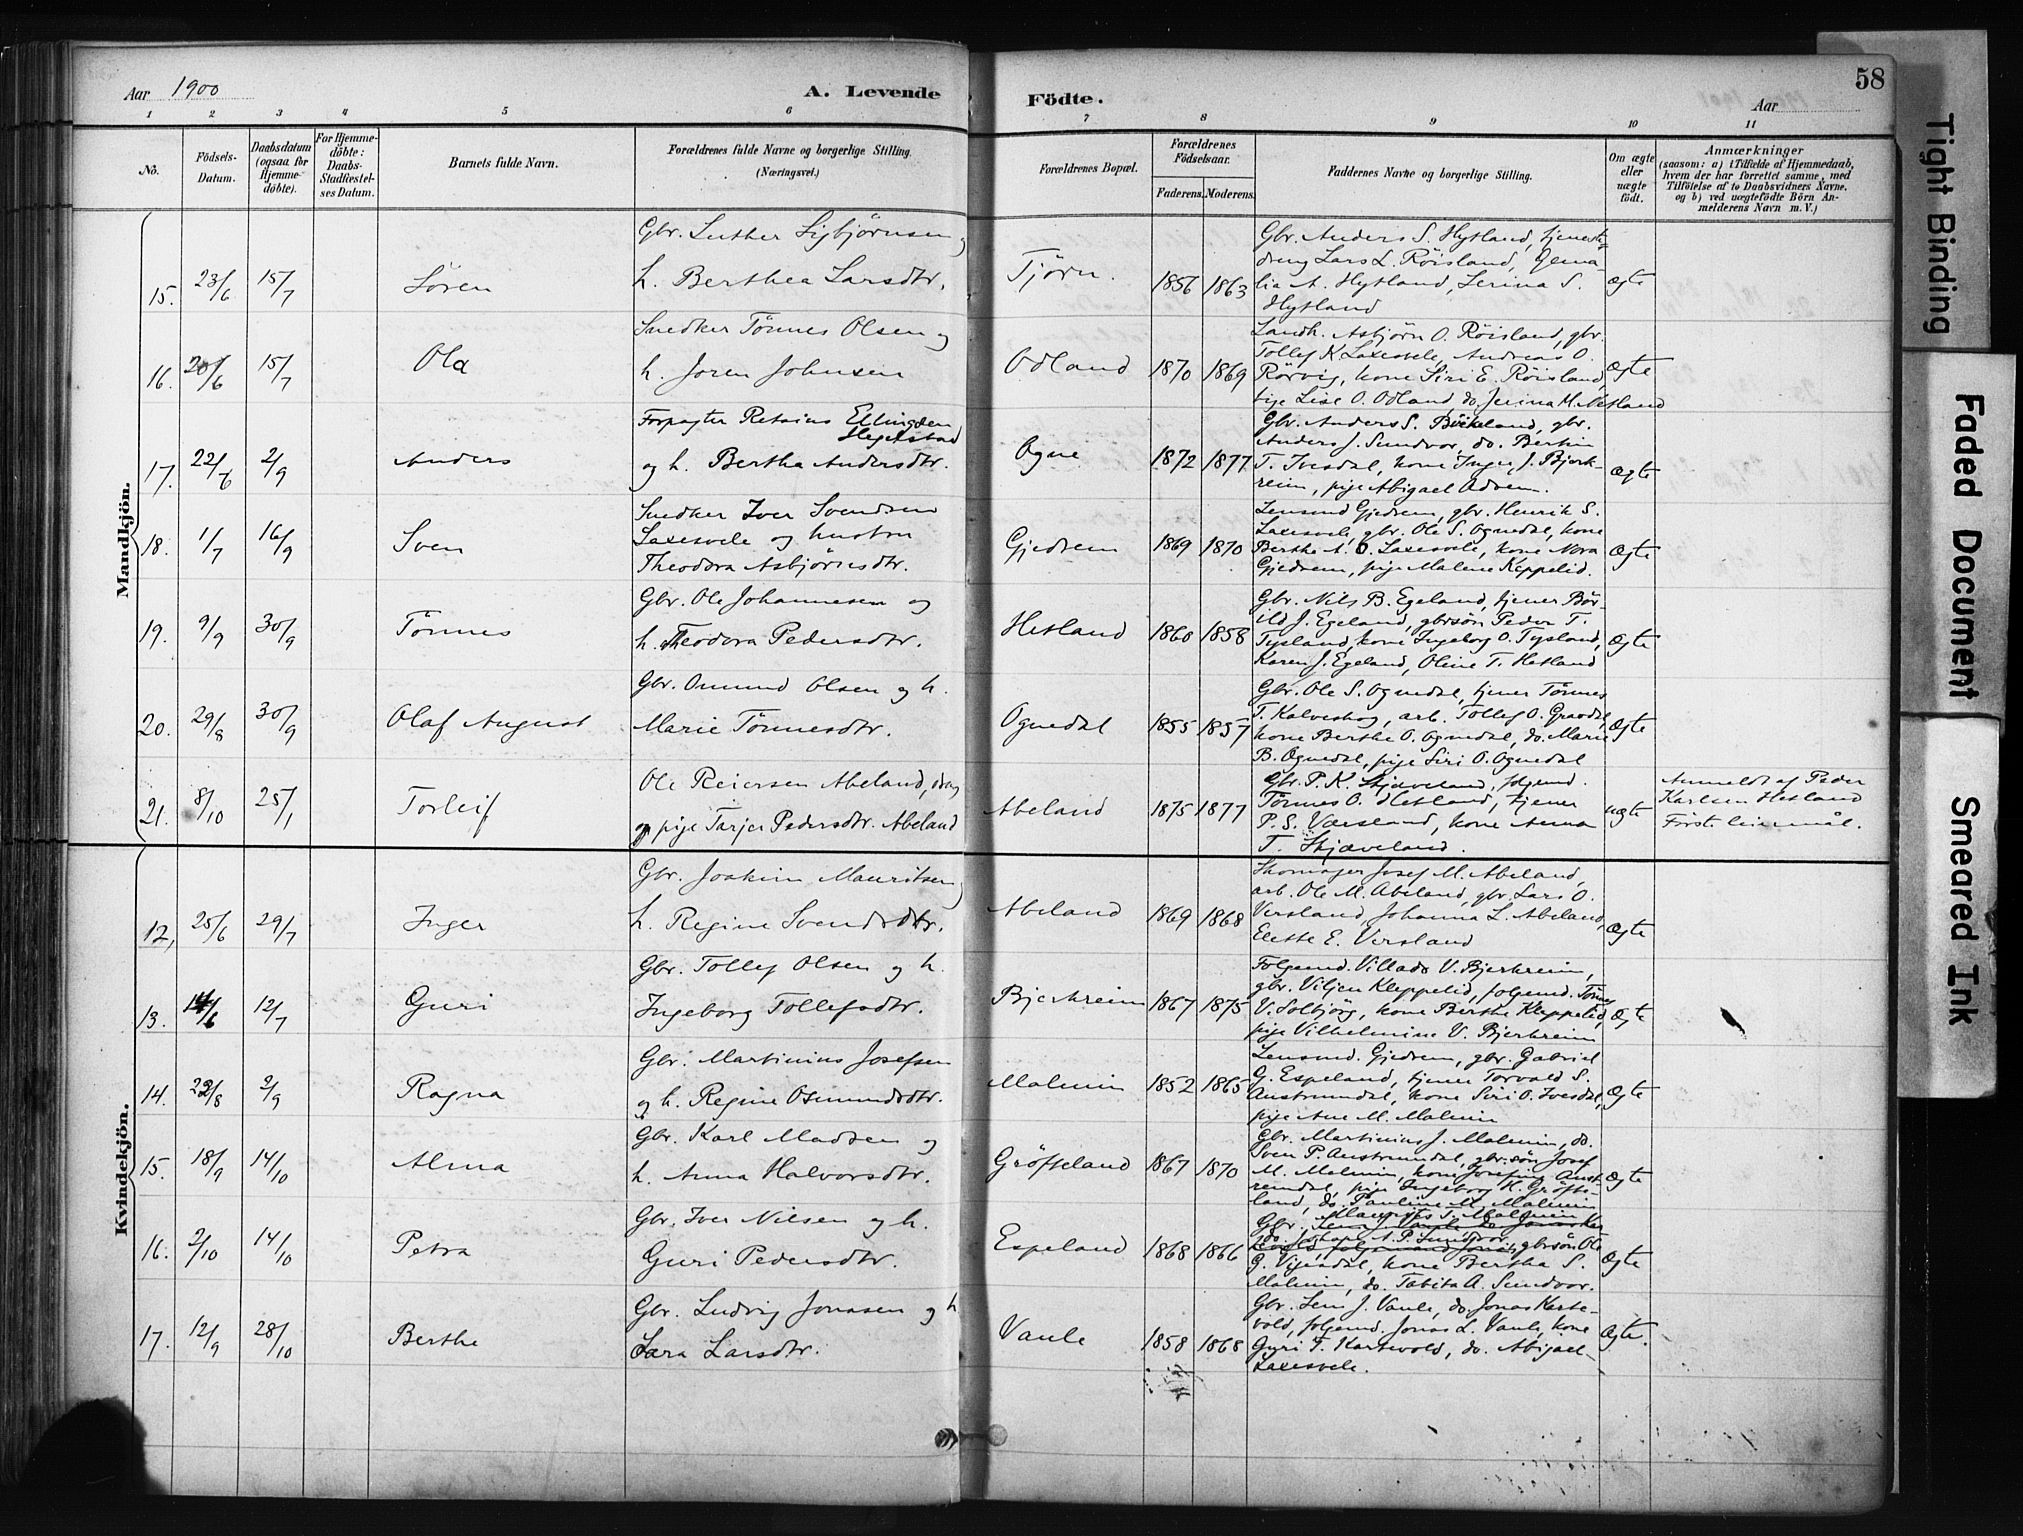 Aar 1900
A. Levende
Födte.
Aar
58
1 2 3 4 5 6 7 8 9 10 11
No.
Födsels-Datum.
Daabsdatum (ogsaa for Hjemme-döbte).
For Hjemme-döbte: Daabs-Stadfæstel-ses Datum.
Barnets fulde Navn.
Forældrenes fulde Navne og borgerlige Stilling. (Næringsvei.)
Forældrenes Bopæl.
Forældrenes Födselsaar.
Faderens. Moderens.
Faddernes Navne og borgerlige Stilling.
Om ægte eller uægte födt.
Anmærkninger
(saasom: a) i Tilfælde af Hjemmedaab,
hvem der har forrettet samme, med
Tilföielse af to Daabsvidners Navne.
og b) ved uægtefödte Börn An-
melderens Navn m. V.)
Mandkjön.
15. 23/6 15/7 Sören
Gbr. Luther Sigbjörnsen og
h. Berthea Larsdtr.
Tjörn. 1856 1863
Gbr. Anders S. Hytland, tjeneste-
dreng Lars L. Röisland,
lia A. Hytland, Serina S.
Hytland
ægte
16. 20/6 15/7 Ola
Snedker Tönnes Olsen og
h. Joren Johnsen
Odland 1870 1869
Landh. Asbjörn O. Röisland, gbr.
Tollef K. Laxesvele, Andreas O.
Rörvig, kone Siri E. Röisland,
pige Lise O. Odland, do. Jerina M. Netland
ægte
17. 22/6 2/9 Anders
Forpagter Retsius Ellingsen
Hegelstad
og h. Bertha Andersdtr.
Ogne 1872 1877
Gbr. Anders S. Birkeland, gbr.
Anders J. Sundvor, do. Bertin
T. Ivesdal, kone Inger J. Bjerk-
reim, pige Abigael
ægte
18. 1/7 16/9 Sven
Snedker Iver Svendsen
Laxesvele og hustru
Theodora Asbjörnsdtr.
Gjedrem 1869 1870
Lensmd Gjedrem, gbr. Henrik S.
Laxesvele, gbr. Ole S. Ognedal, kone
Berthe A. O. Laxesvele, kone Nora
Gjedrem, pige Malene Kleppelid.
ægte
19. 9/9 30/9 Tönnes
Gbr. Ole Johannesen og
h. Theodora Pedersdtr.
Hetland 1860 1858
Gbr. Nils B. Egeland, tjener Bör-
ild J. Egeland, gbrsön Peder T.
Tysland, kone Ingeborg O. Tysland,
Karen J. Egeland, Oline T. Hetland
ægte
20. 29/8 30/9 Olaf August
Gbr. Omund Olsen og h.
Marie Tönnesdtr.
Ognedal 1855 1857
Gbr. Ole S. Ognedal, tjener Tönnes
T. Kalveskog, arb. Tollef O. Graadal,
kone Berthe O. Ognedal, do. Marie
B. Ognedal, pige Siri O. Ognedal
ægte
21. 8/10 25/1 Torleif
Ole Reiersen Abeland, dreng
og pige Tarjer Pedersdtr. Abeland
Abeland 1875 1877
Gbr. P. K. Skjæveland, folgemd.
Tönnes O. Hetland, tjener
P. S. Værsland, kone Anna
T. Skjæveland.
uægte
Anmeldt af Peder
Karlsen Hetland
Först. leiermål.
Kvindekjön.
12, 25/6 29/7 Inger
Gbr. Joakim Mauritsen
h. Regine Svendsdtr.
Abeland 1869 1868
Skomager Josef M. Abeland,
arb. Ole M. Abeland, gbr Lars O.
Versland, Johanna L. Abeland,
Elette E. Versland
ægte
13. 14/6 12/7 Guri
Gbr. Tollef Olsen og h.
Ingeborg Tollefsdtr.
Bjerkreim 1867 1875
Folgemd. Villads V. Bjerkreim,
gbr. Viljen Kleppelid, folgemd. Tönnes
V. Solbjörg, kone Berthe Kleppelid,
pige Vilhelmine V. Bjerkreim
ægte
14. 22/8 2/9 Ragna
Gbr. Martinius Josefsen
og h. Regine Osmundsdtr.
Malmin 1852 1865
Lensmd. Gjedrem, gbr. Gabriel
G. Espeland, tjener Torvald S.
Austrumdal, kone Siri O. Ivesdal,
pige Ane M. Malmin
ægte
15. 18/9 14/10 Alma
Gbr. Karl Madsen og
h. Anna Halvorsdtr.
Gröfteland 1867 1870
Gbr. Martinius J. Malmin, do.
Sven P. Austrumdal, gbr.sön Josef
M. Malmin, kone Josefine Aust-
remdal, pige Ingeborg K. Gröfte-
land, do. Pauline M. Malmin
ægte
16. 2/10 14/10 Petra
Gbr. Iver Nilsen og h.
Guri Pedersdtr.
Espeland 1868 1866
Mauritz S. Malmin
Gbr. Sem J. Vaule do. Jonas Kar
do. A. P. Sundvor
gbrsön Ole
G. Vigesdal, kone Bertha S.
Malmin, do. Tabita A. Sundvor.
ægte
17. 12/9 28/10 Berthe
Gbr. Ludvig Jonasen og h
Sara Larsdtr.
Vaule 1858 1868
Gbr. Sem J. Vaule, do. Jonas Karte-
vold, folgemd. Jonas L. Vaule, kone
Guri T. Kartevold, do. Abigael
Laxesvele.
ægte.
Tight Binding
Faded Document
Smeared Ink